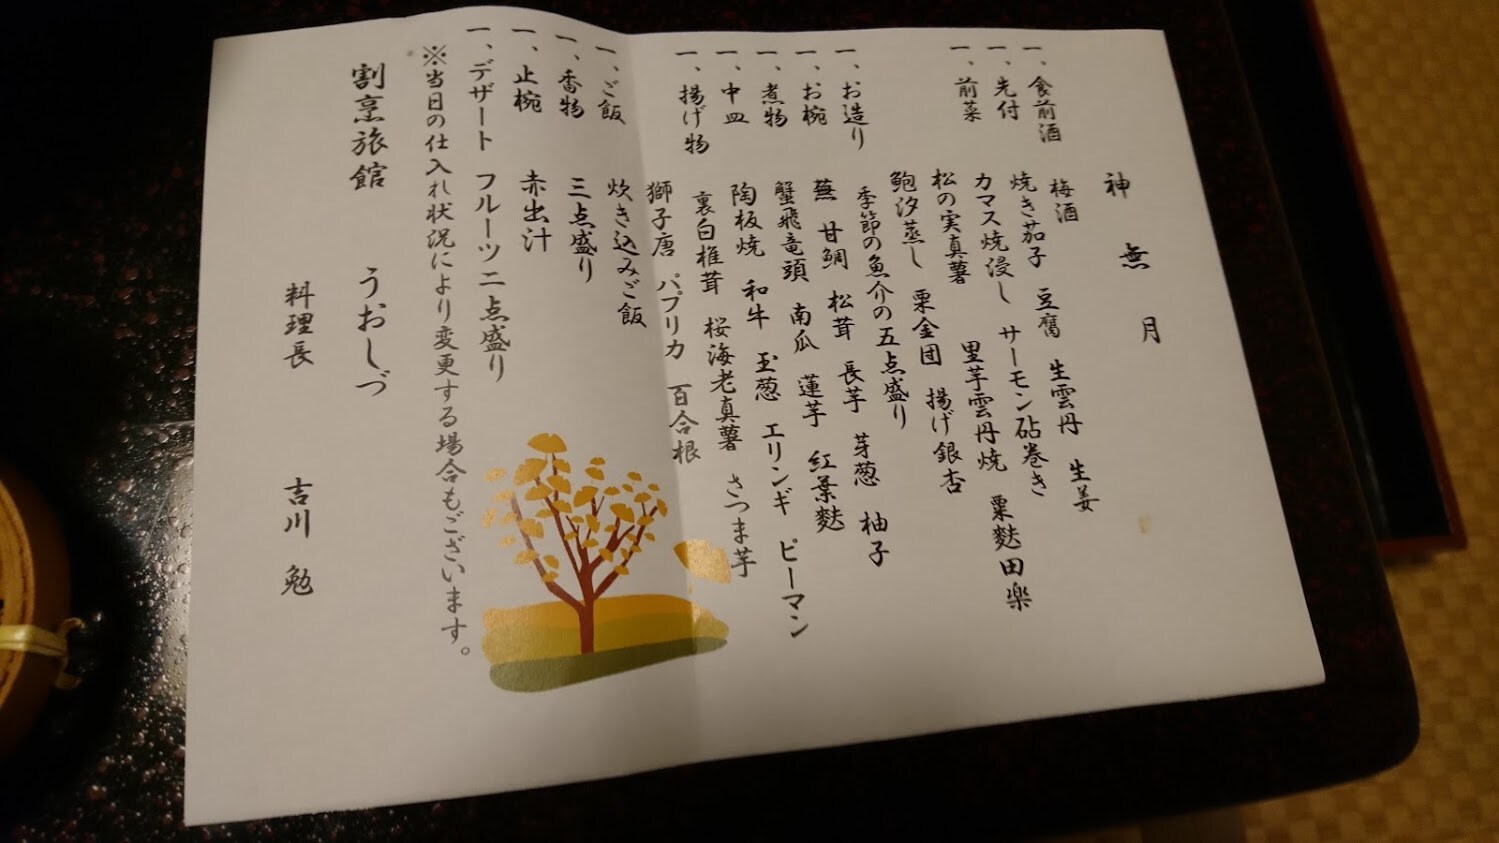 神無月
一、食前酒 梅酒
一、先付 焼き茄子 豆腐 生雲丹 生姜
一、前菜 カマス焼浸し サーモン砧巻き
松の実真薯 里芋雲丹焼 粟麩田楽
鮑汐蒸し 栗金団 揚げ銀杏
一、お造り 季節の魚介の五点盛り
一、お椀 蕪 甘鯛 松茸 長芋 芽葱 柚子
一、煮物 蟹飛竜頭 南瓜 蓮芋 紅葉麩
一、中皿 陶板焼 和牛 玉葱 エリンギ ピーマン
一、揚げ物 裏白椎茸 桜海老真薯 さつま芋
獅子唐 パプリカ 百合根
一、ご飯 炊き込みご飯
一、香物 三点盛り
一、止椀 赤出汁
一、デザート フルーツ二点盛り
※当日の仕入れ状況により変更する場合もございます。
割烹旅館 うおしづ
料理長 吉川 勉